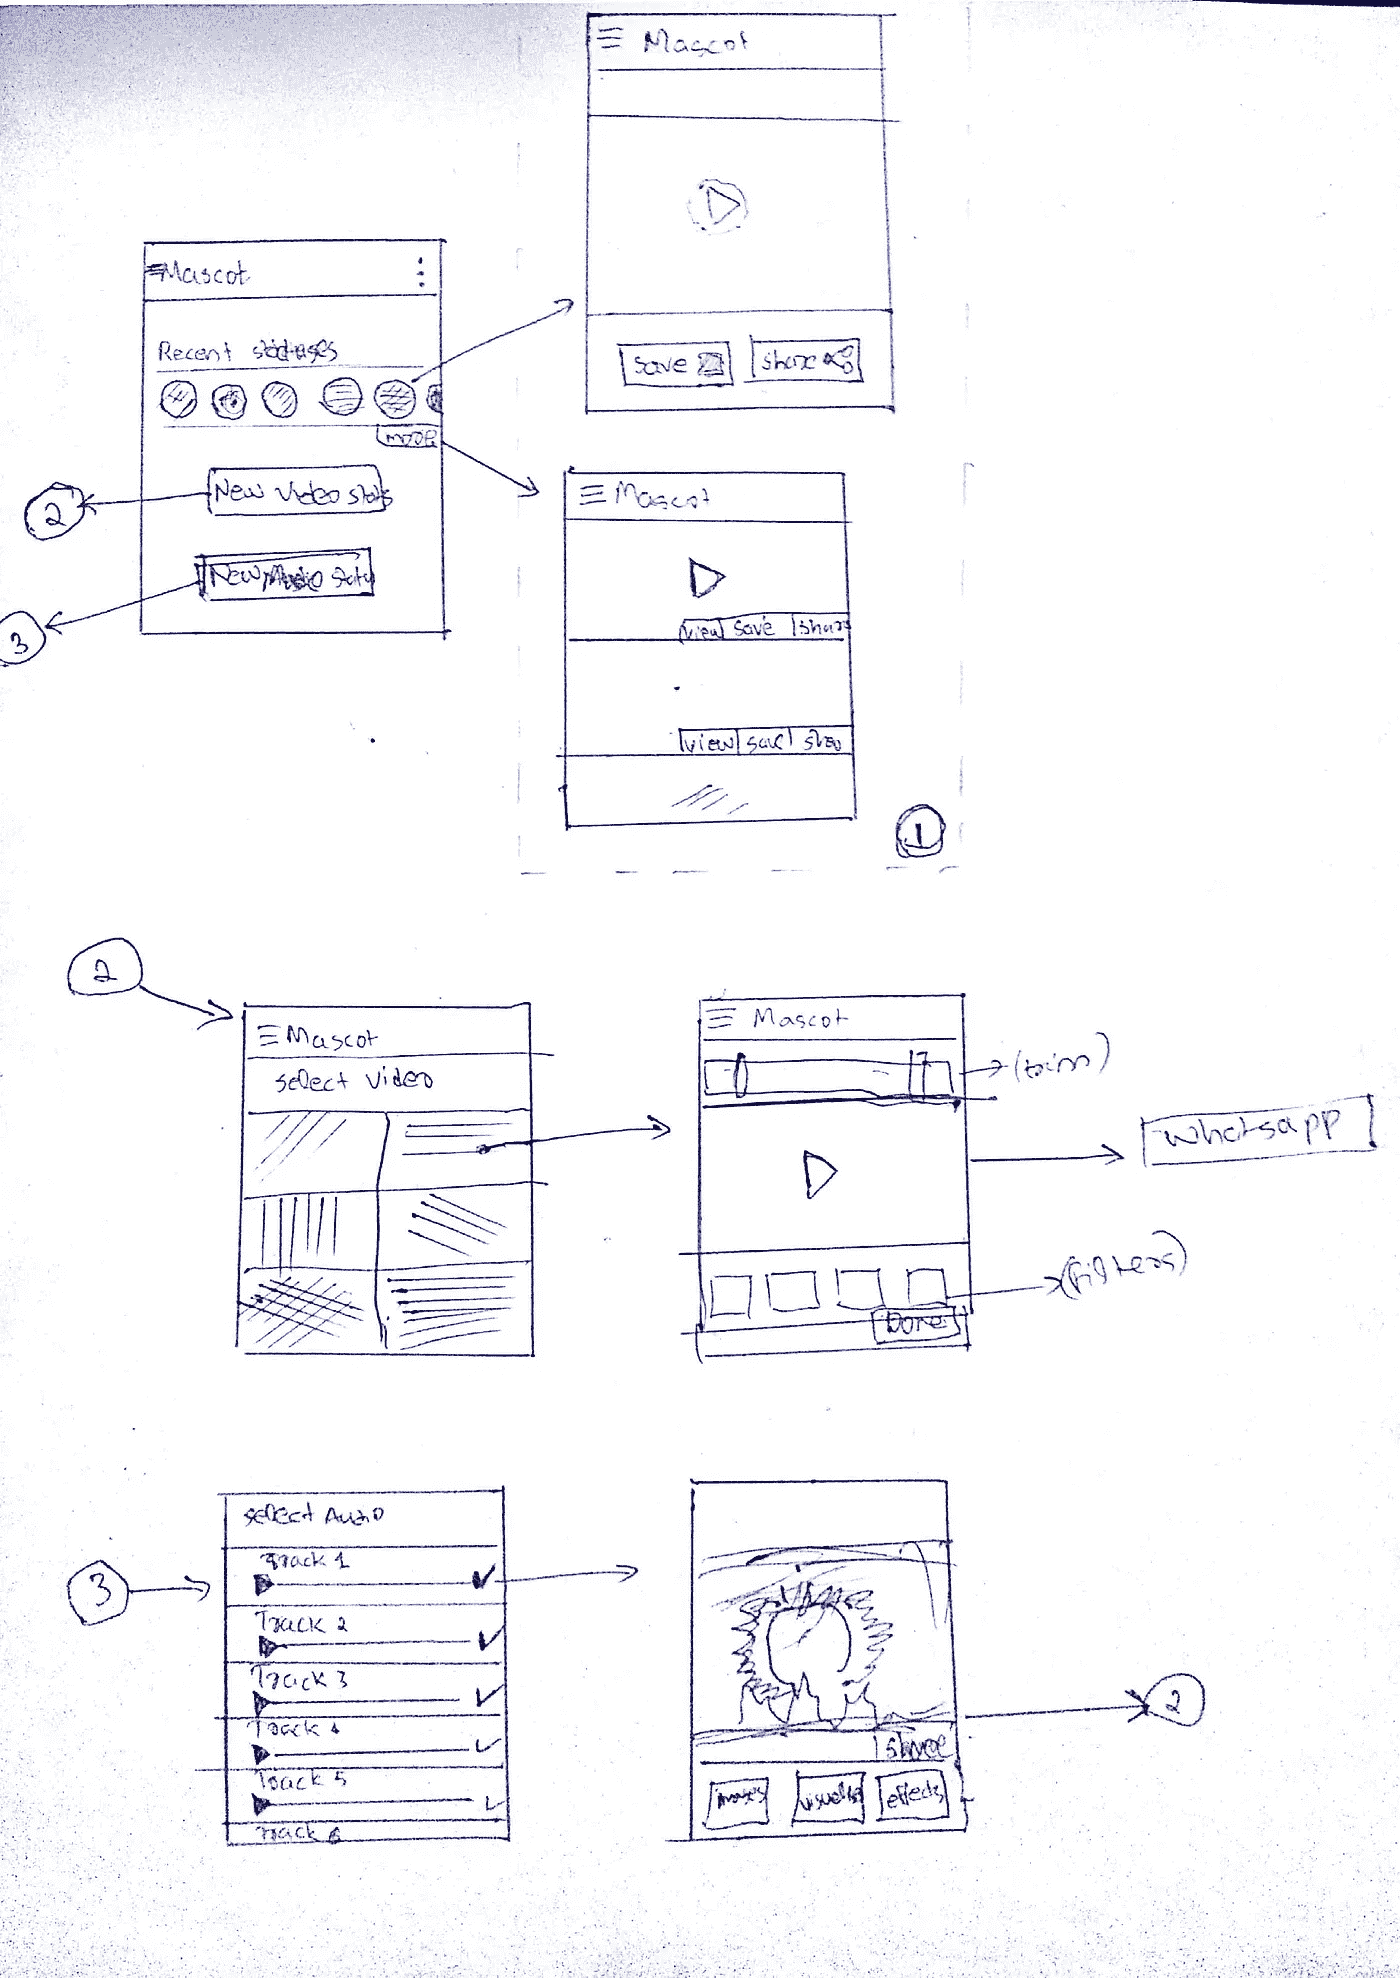 Mascot
save
share
Mascot
Recent statuses
more
New video stats
New
2
3
Mascot
view save share
view save
1
2
Mascot
select video
Mascot
(trim)
whatsapp
(filters)
Done
3
select Audio
Track 1
Track 2
Track 3
Track 4
Track 5
Track 6
share
images
effects
2